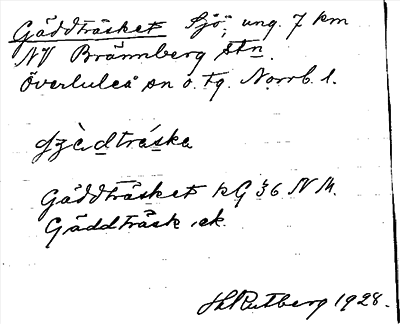 Gäddträsket Sjö, ung. 7 km
NV Brännberg stn.
Överluleå sn o. tg. Norrb. l.
Gäddträsket kG 36 N M.
Gäddträsk, ek.
H Rutberg 1928.